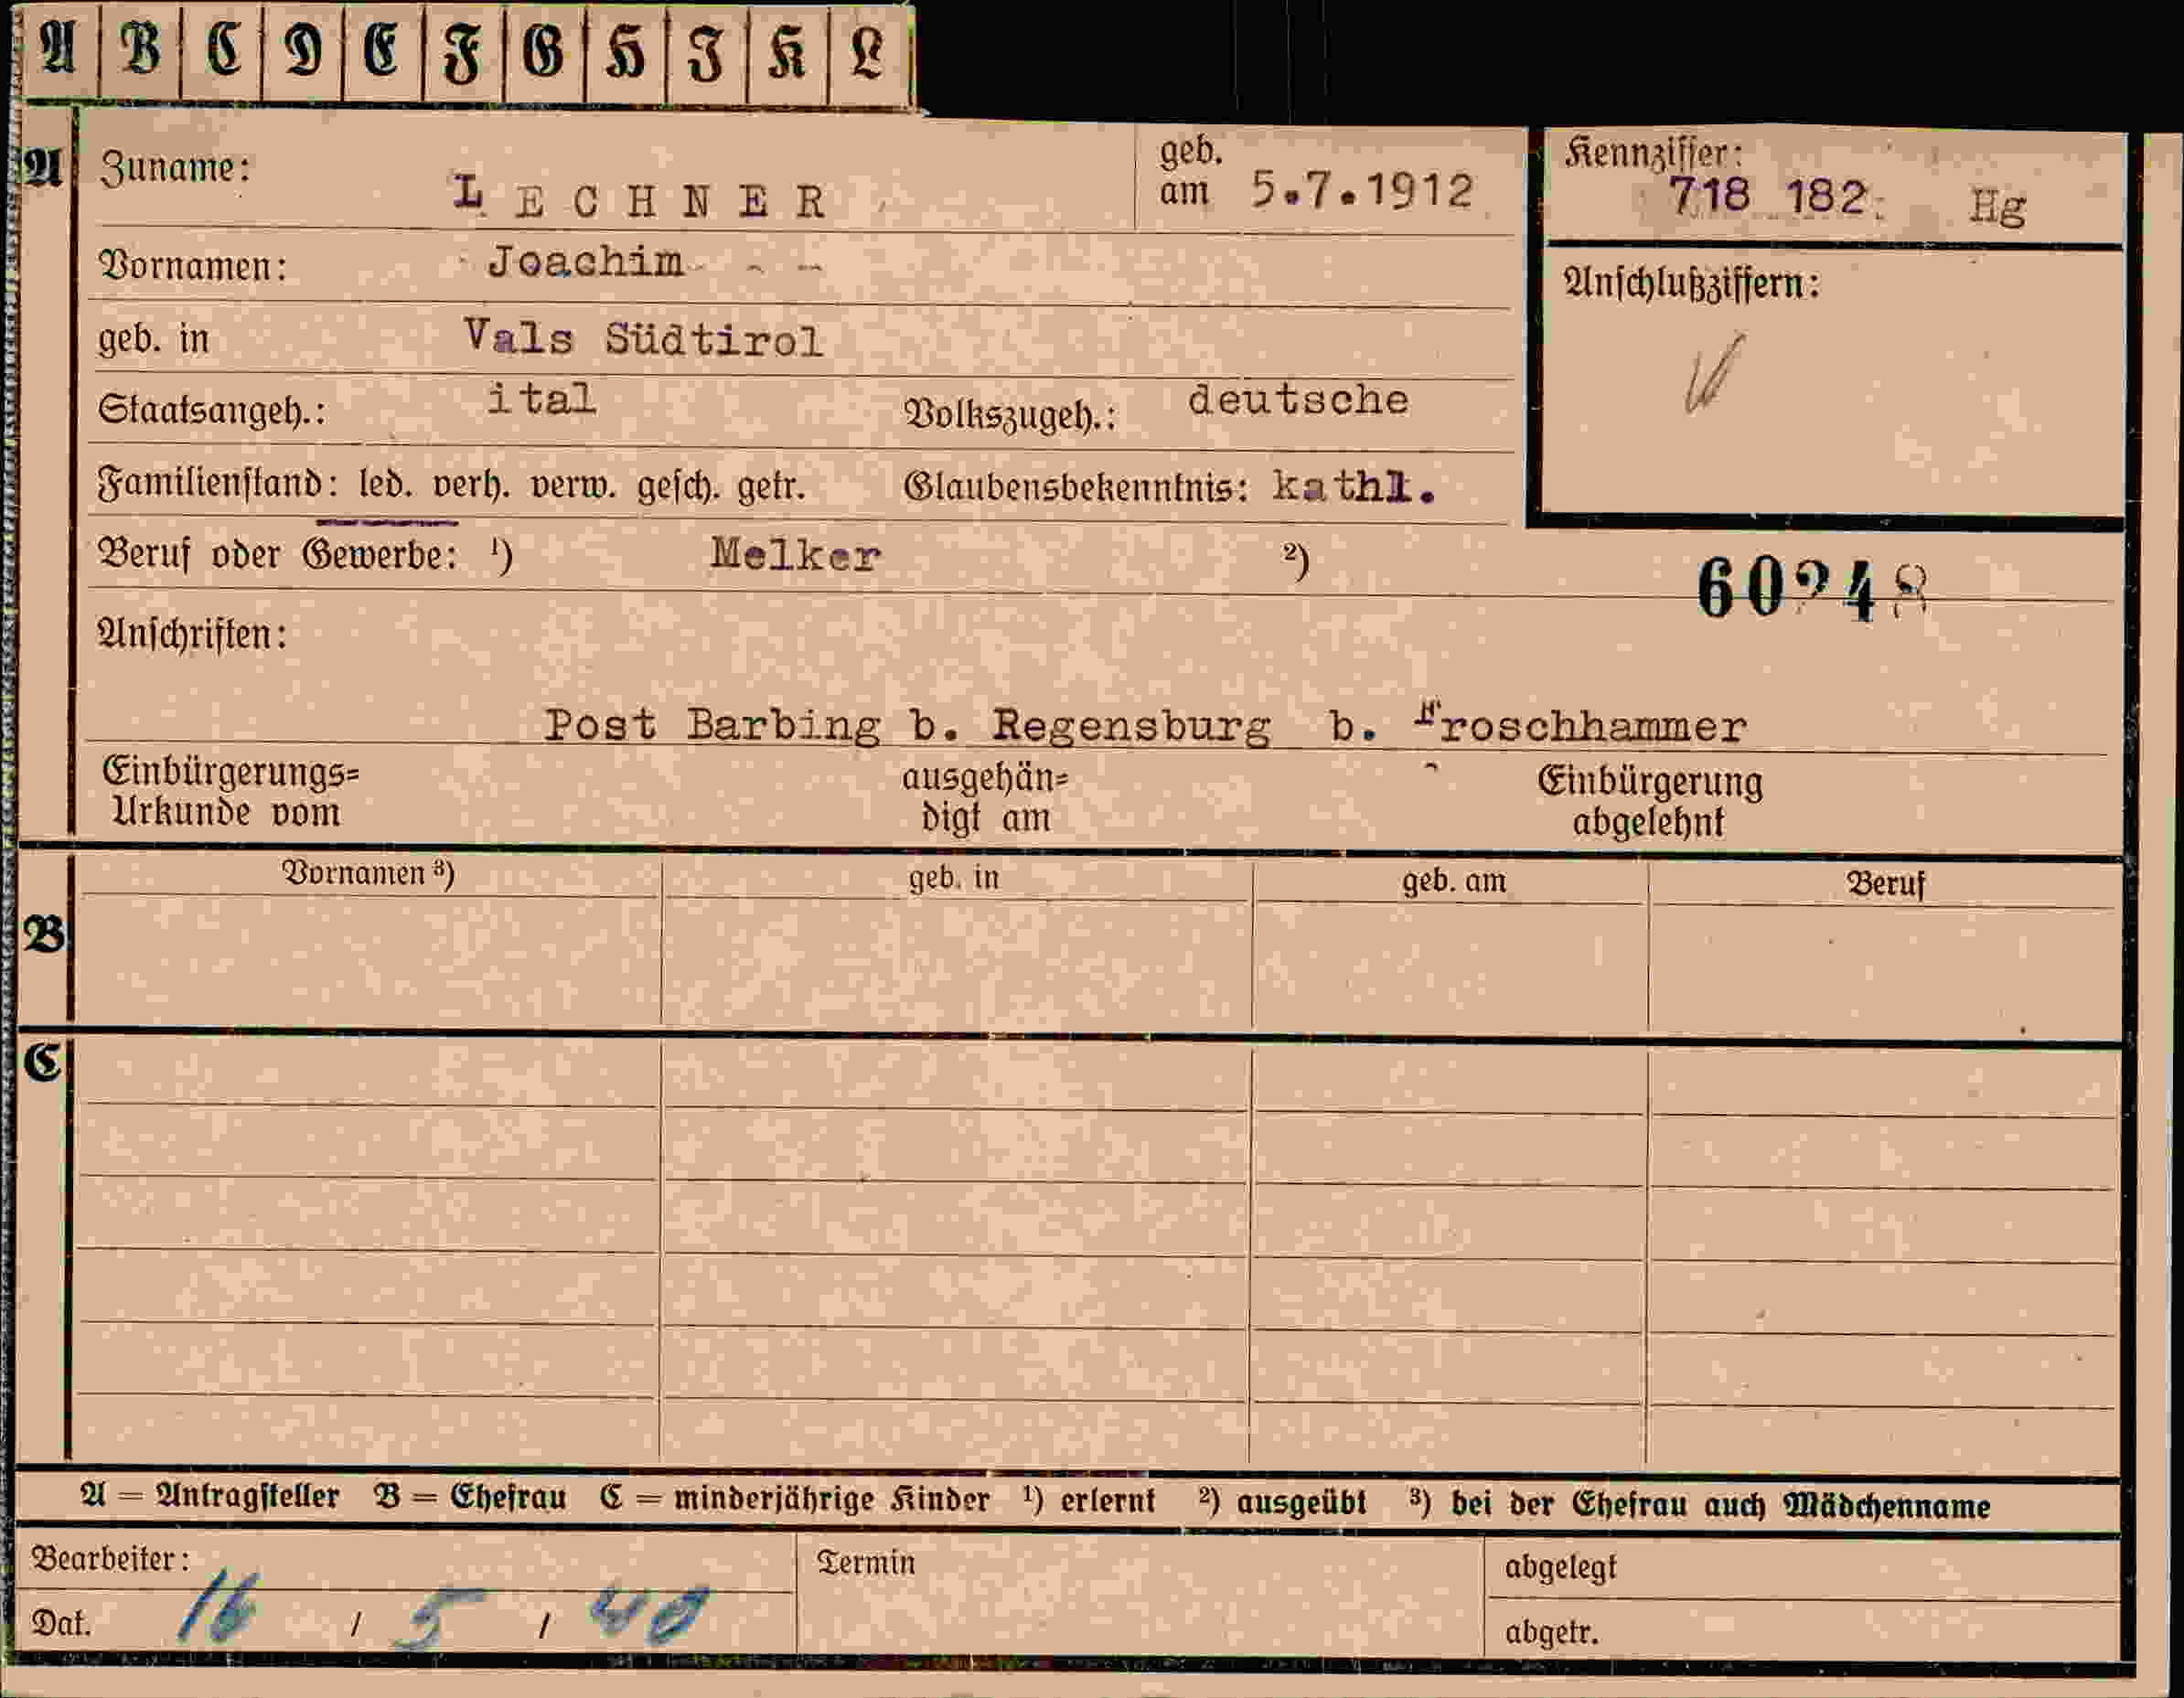 A B C D E F G H I K L
A Zuname: LECHNER geb. am 5.7.1912
Kennziffer: 718 182. Hg
Vornamen: Joachim - -
Anschlußziffern:
geb. in Vals Südtirol
Staatsangeh.: ital Volkszugeh.: deutsche
Familienstand: led. verh. verw. gesch. getr. Glaubensbekenntnis: kathl.
Beruf oder Gewerbe: ¹) Melker ²)
60248
Anschriften:
Post Barbing b. Regensburg b. Froschhammer
Einbürgerungs= ausgehän= Einbürgerung
Urkunde vom digt am abgelehnt
Vornamen ³) geb. in geb. am Beruf
B
C
A = Antragsteller B = Ehefrau C = minderjährige Kinder ¹) erlernt ²) ausgeübt ³) bei der Ehefrau auch Mädchenname
Bearbeiter: Termin abgelegt
Dat. 16 / 5 / 40 abgetr.